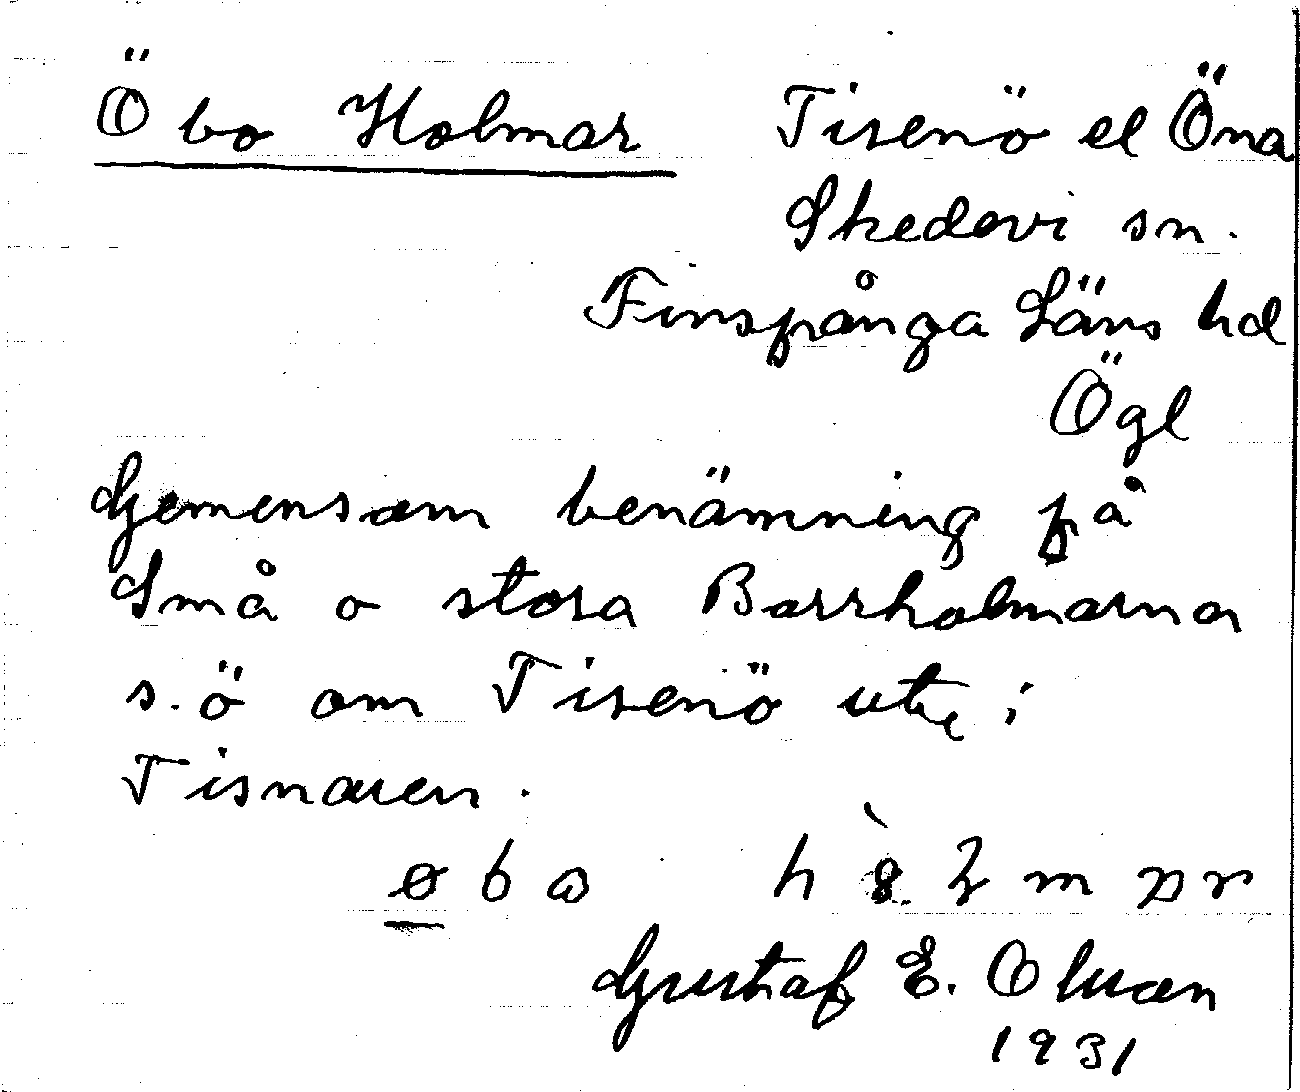 Öbo Holmar Tisenö el Öna
Skedevi sn.
Finspånga Läns hd
Ögl
Gemensam benämning på
Små o stora Barrholmarna
s.ö om Tisenö ute i
Tisnaren.
Gustaf E. Olsson
1931